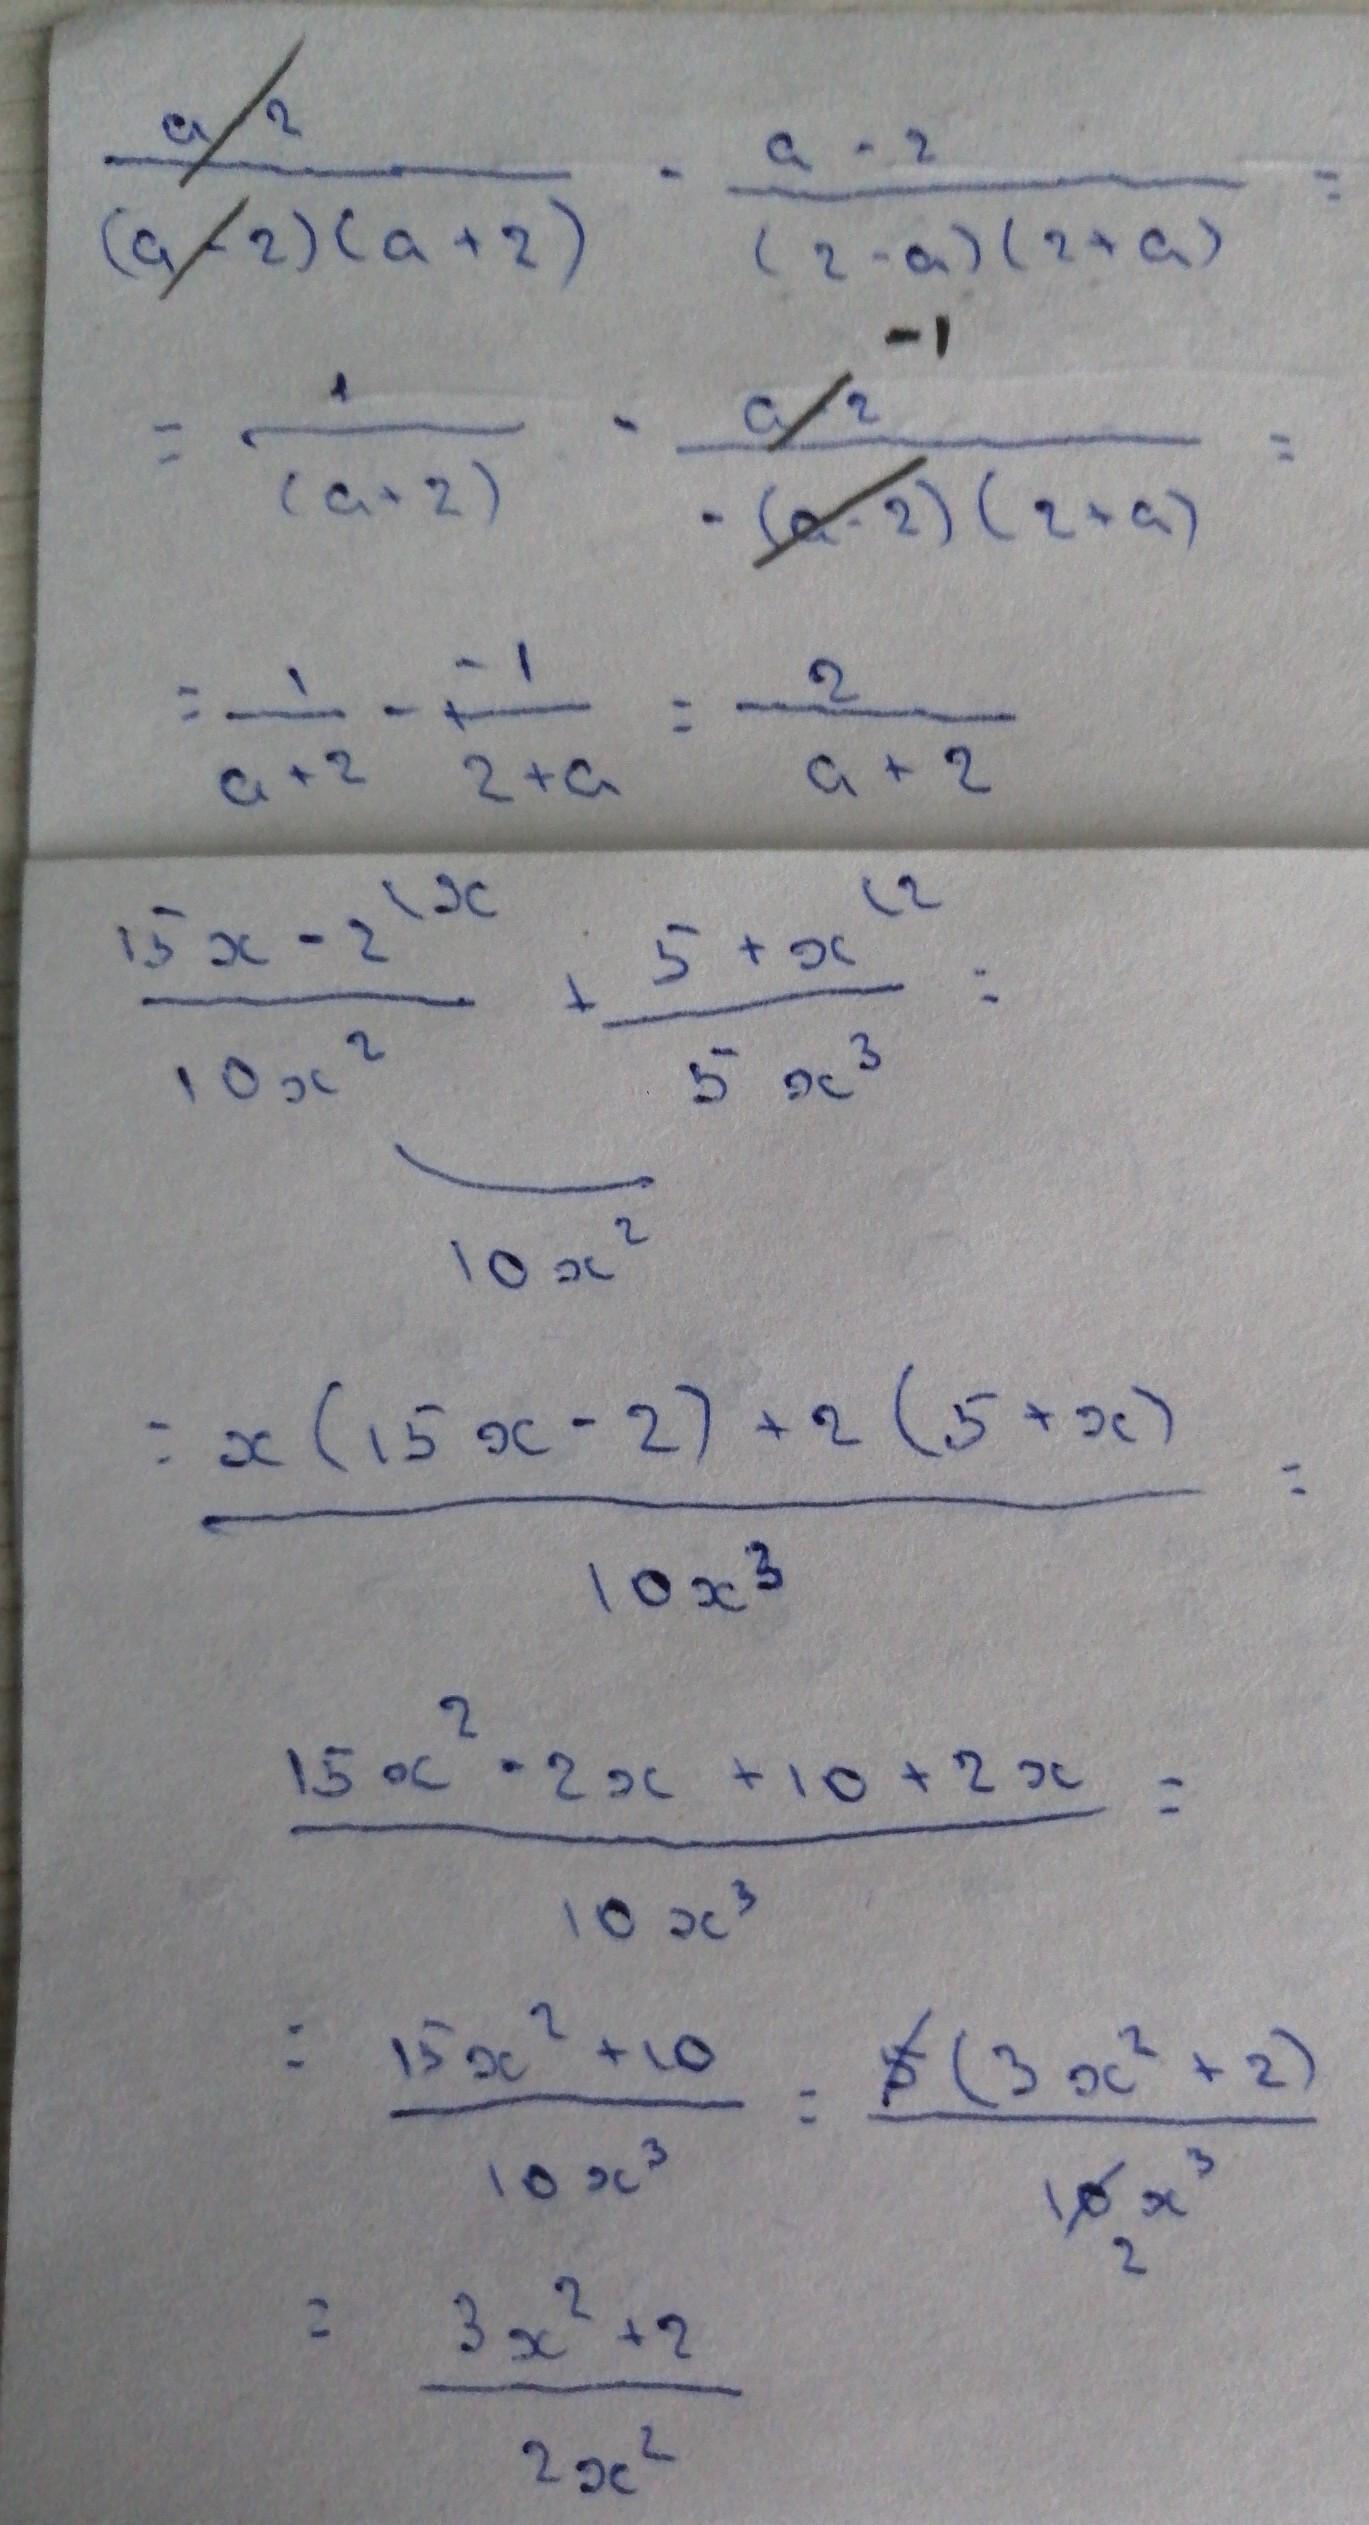 a-2/(a-2)(a+2) - a-2/(2-a)(2+a) =
= 1/(a+2) - a-2/-(a-2)(2+a) = -1
= 1/a+2 - -1/2+a = 2/a+2
15x-2/10x² (x + 5+x/5x³ (2 =
10x²
= x(15x-2)+2(5+x)/10x³ =
15x²-2x+10+2x/10x³ =
= 15x²+10/10x³ = 5(3x²+2)/10x³
2
= 3x²+2/2x²